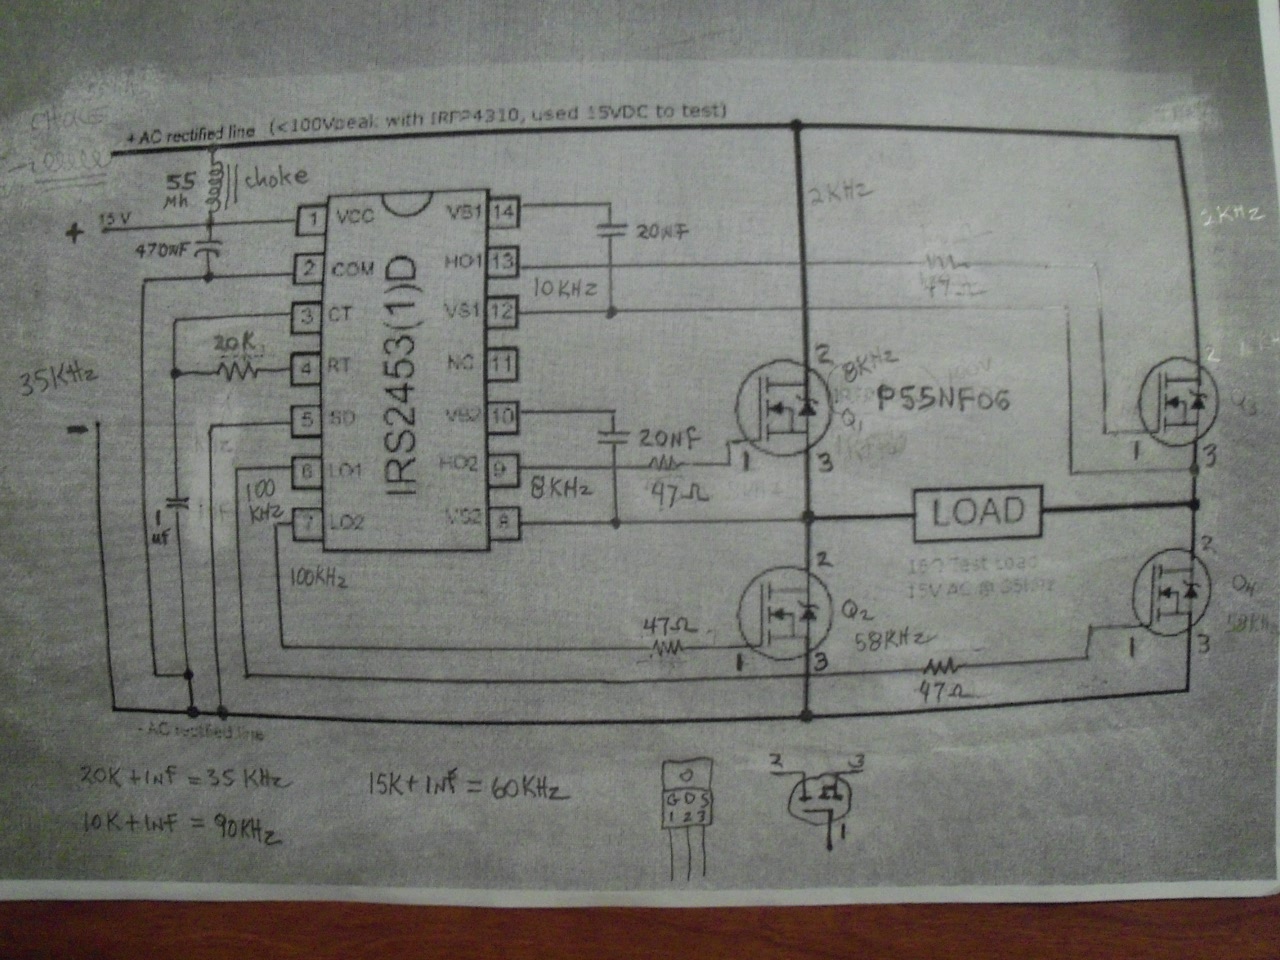 CHOKE
+ AC rectified line (<100Vpeak with IRFP4310, used 15VDC to test)
55
Mh
choke
2KHz
2KHz
+ 15V
470NF
1 VCC
VB1 14
20NF
2 COM
HO1 13
10KHz
47Ω
3 CT
VS1 12
20K
35KHz
4 RT
NC 11
IRS2453(1)D
2
8KHz
P55NF06
Q1
1
3
2
Q3
1
3
-
5 SD
VB2 10
20NF
6 LO1
HO2 9
8KHz
47Ω
100
KHz
1
uF
7 LO2
VS2 8
LOAD
Test Load
15V AC @ 35kHz
100KHz
47Ω
2
Q2
1
3
58KHz
2
Q4
1
3
58KHz
47Ω
- AC rectified line
20K+1NF = 35 KHz
15K+1NF = 60KHz
10K+1NF = 90KHz
G D S
1 2 3
2 3
1